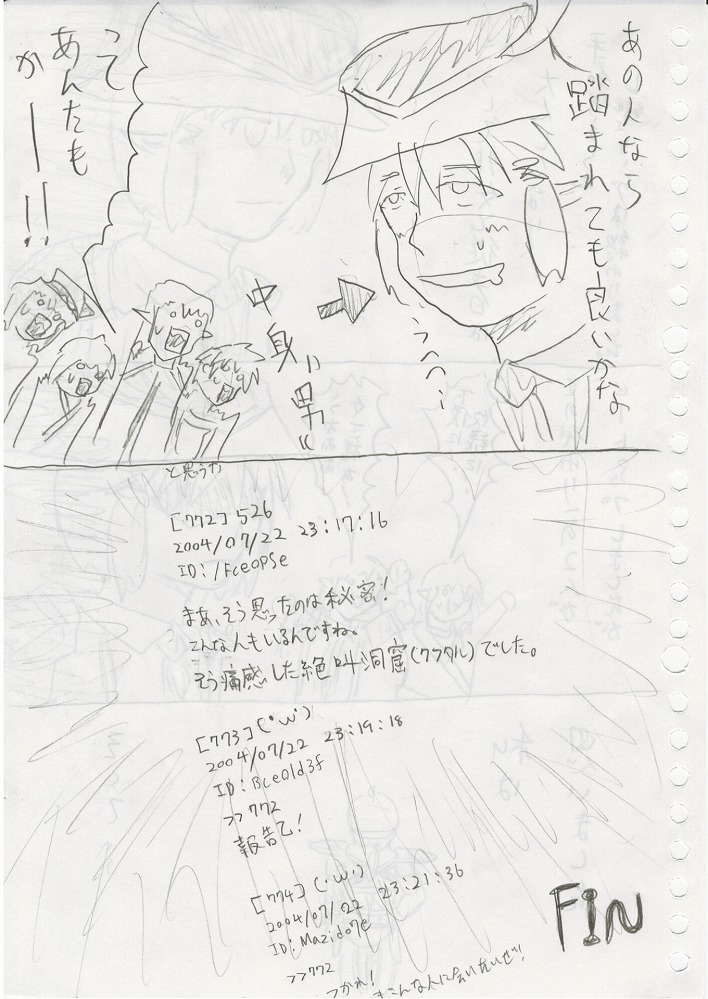 あの人なら
踏まれても良いかな
うへへ…
中身"男"
って
あんたも
かー!!
と思うか
[772] 526
2004/07/22 23:17:16
ID:/Fce0pSe
まあ、そう思ったのは秘密!
こんな人もいるんですね。
そう痛感した絶叫洞窟(クフタル)でした。
[773] (・ω・)
2004/07/22 23:19:18
ID:Bce0ld3f
>>772
報告乙!
[774] (・ω・)
2004/07/22 23:21:36
ID:Mazido7e
>>772
つかれ!
こんな人に会いたいぜ!
FiN